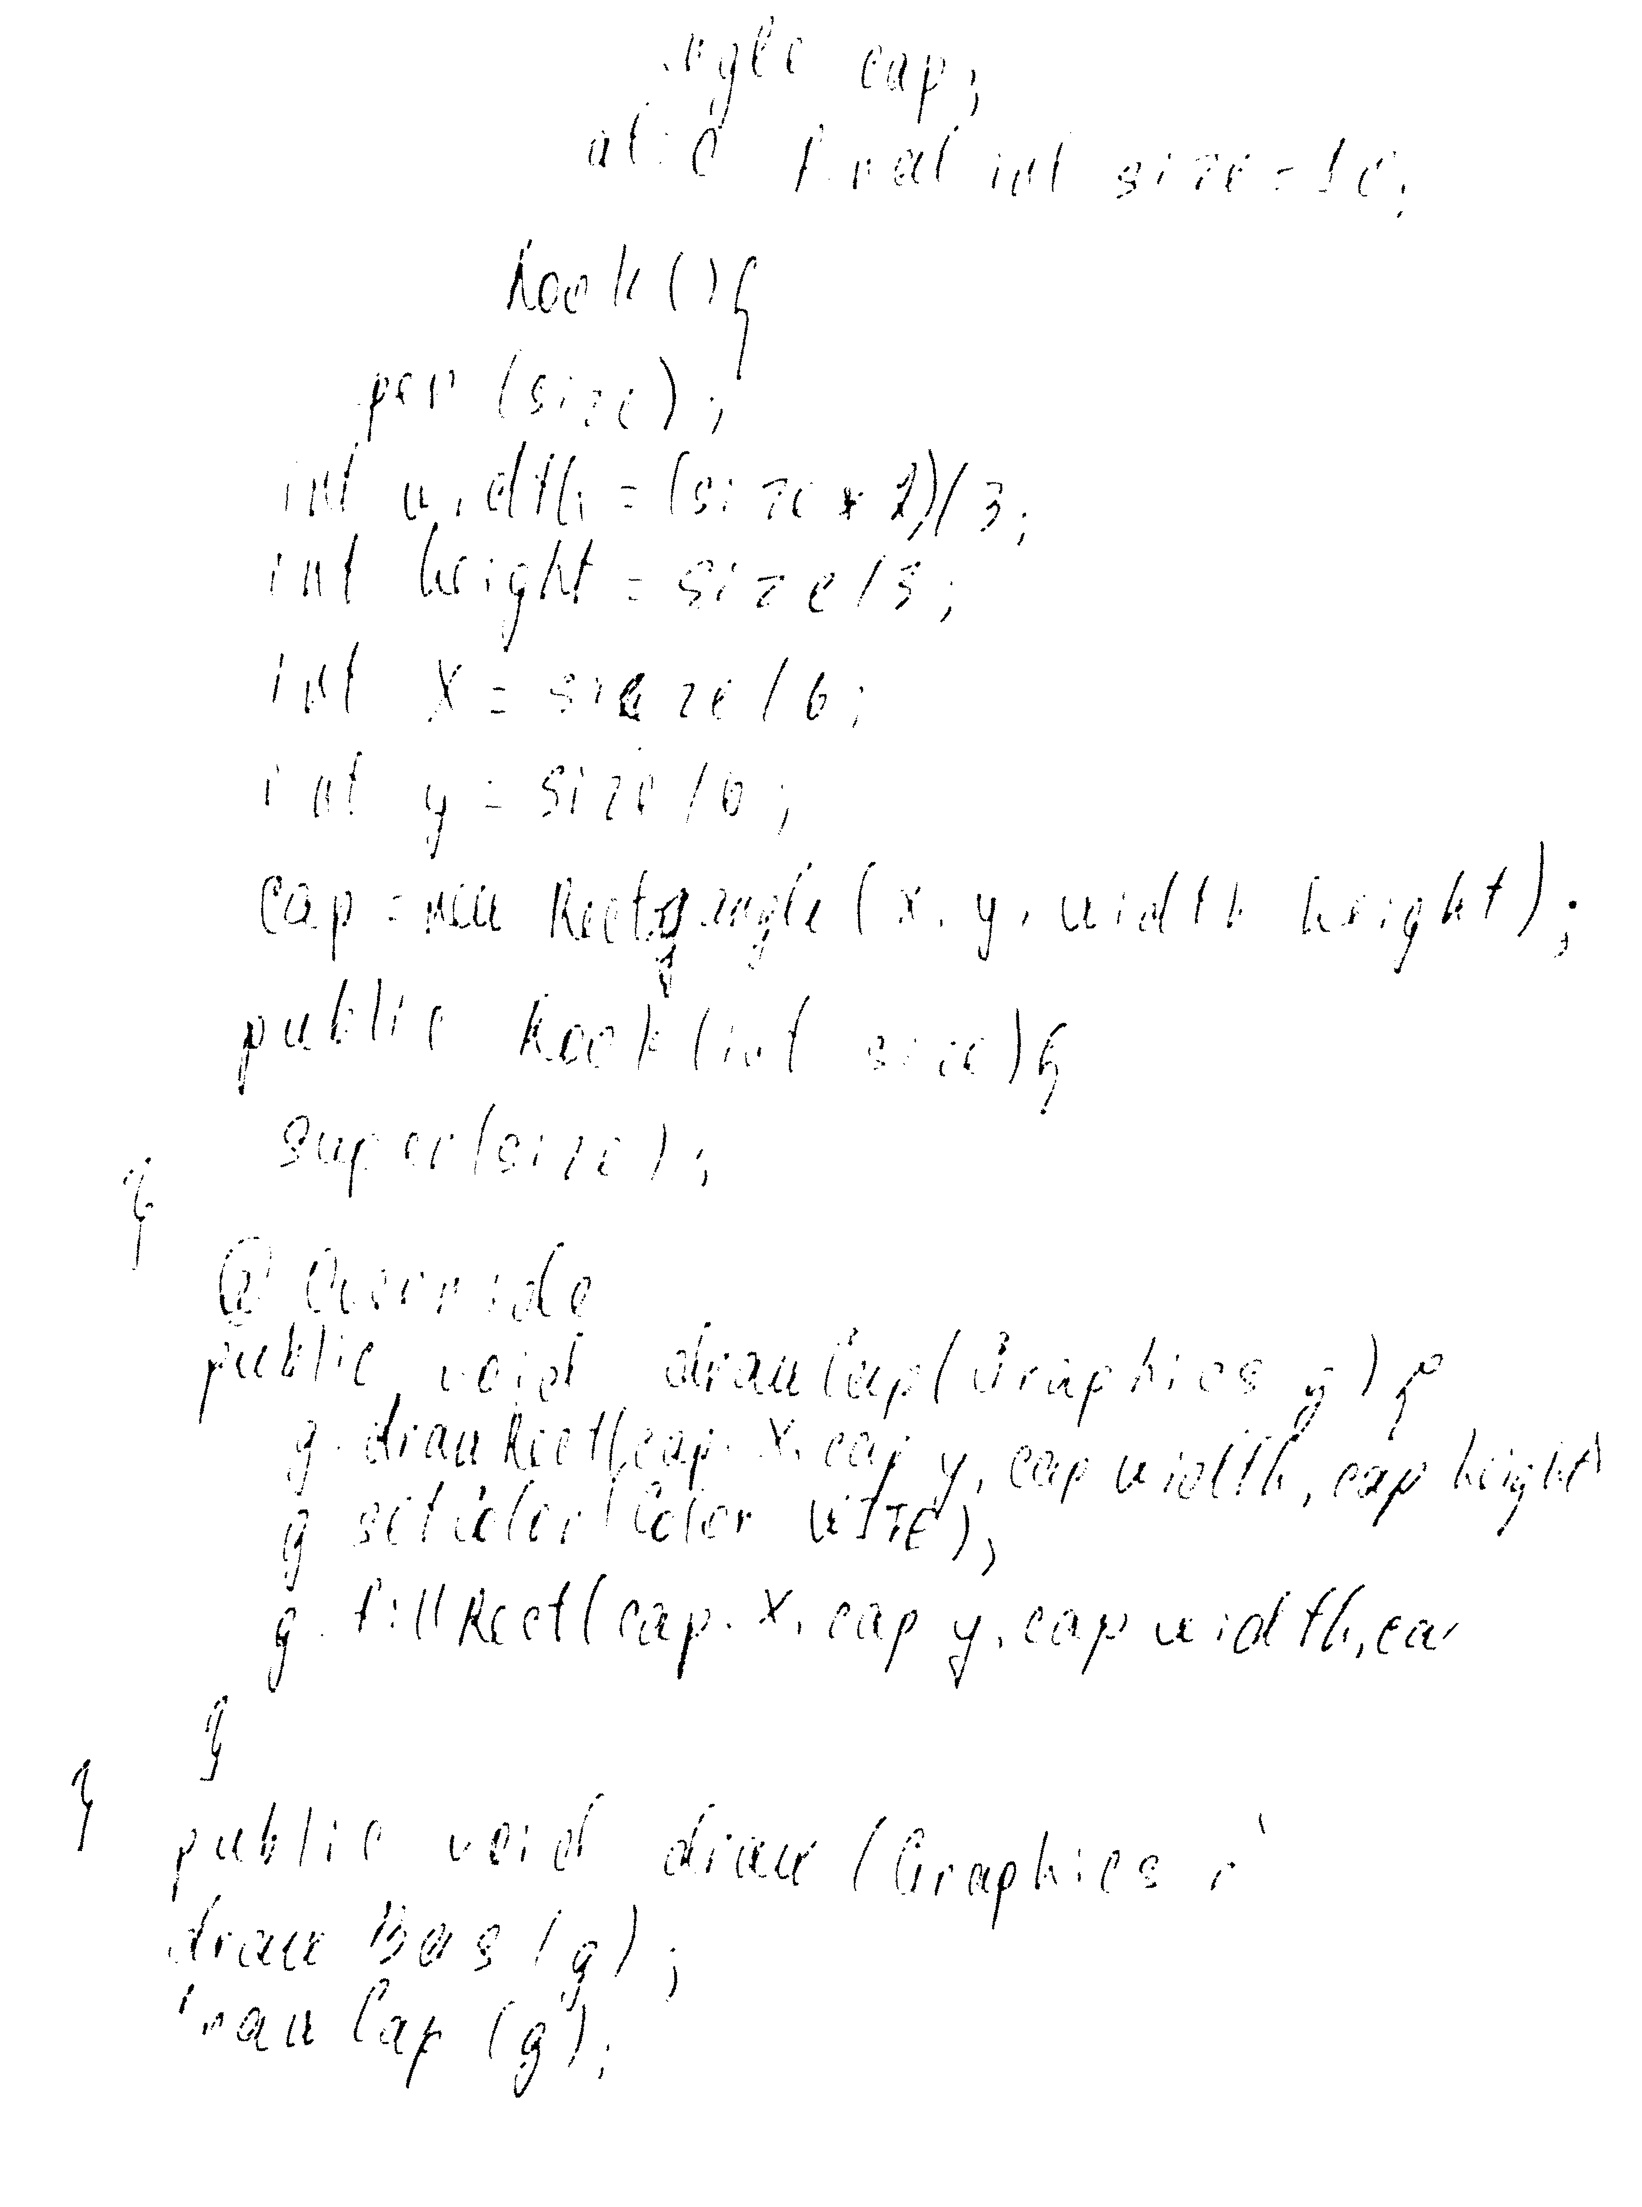 cap;
int size=10;
Rook(){
(size);
int width=(size*2)/3;
int height=size/3;
int x=size/6;
int y=size/6;
cap=new Rectangle(x, y, width height);
public Rook(int size){
super(size);
}
@Override
public void drawCap(Graphics g){
g.drawRect(cap.x, cap y, cap width, cap height)
g setColor(Color WITE);
g.fillRect(cap.x, cap y, cap width,
}
}
public void draw(Graphics
draw Bas(g);
Cap(g);